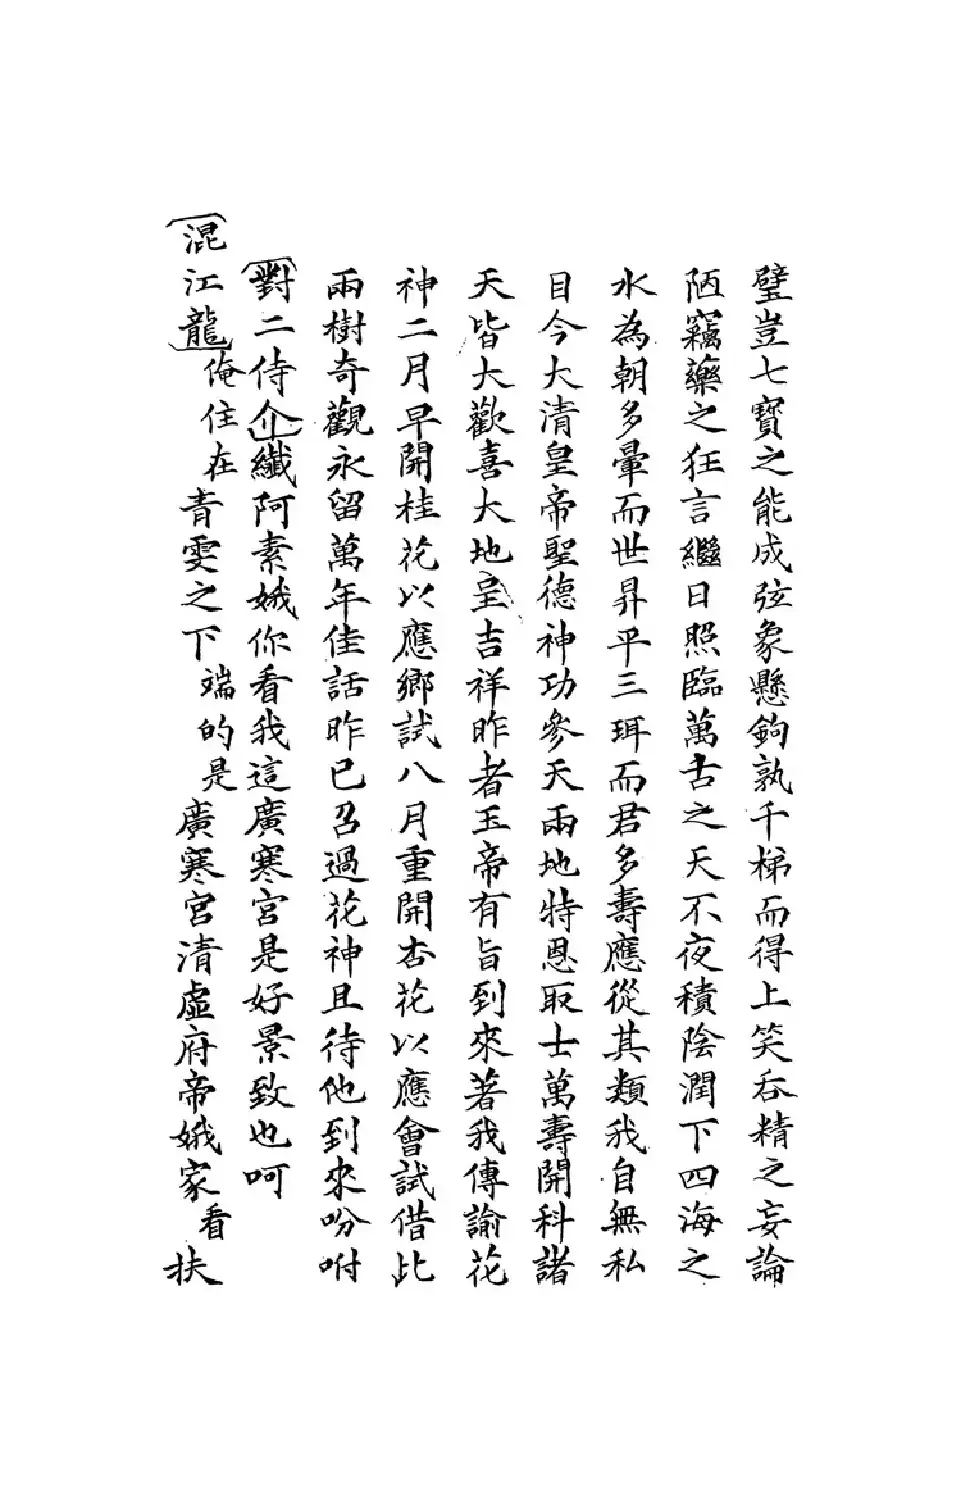 璧豈七寶之能成弦象懸鉤孰千梯而得上笑吞精之妄論
陋竊藥之狂言繼日照臨萬古之天不夜積陰潤下四海之
水為朝多暈而世昇平三珥而君多壽應從其類我自無私
目今大清皇帝聖德神功參天兩地特恩取士萬壽開科諸
天皆大歡喜大地呈吉祥昨者玉帝有旨到來著我傳諭花
神二月早開桂花以應鄉試八月重開杏花以應會試借此
兩樹奇觀永留萬年佳話昨已召過花神且待他到來吩咐
對二侍介纖阿素娥你看我這廣寒宮是好景致也呵
混江龍俺住在青雯之下端的是廣寒宮清虛府帝娥家看扶